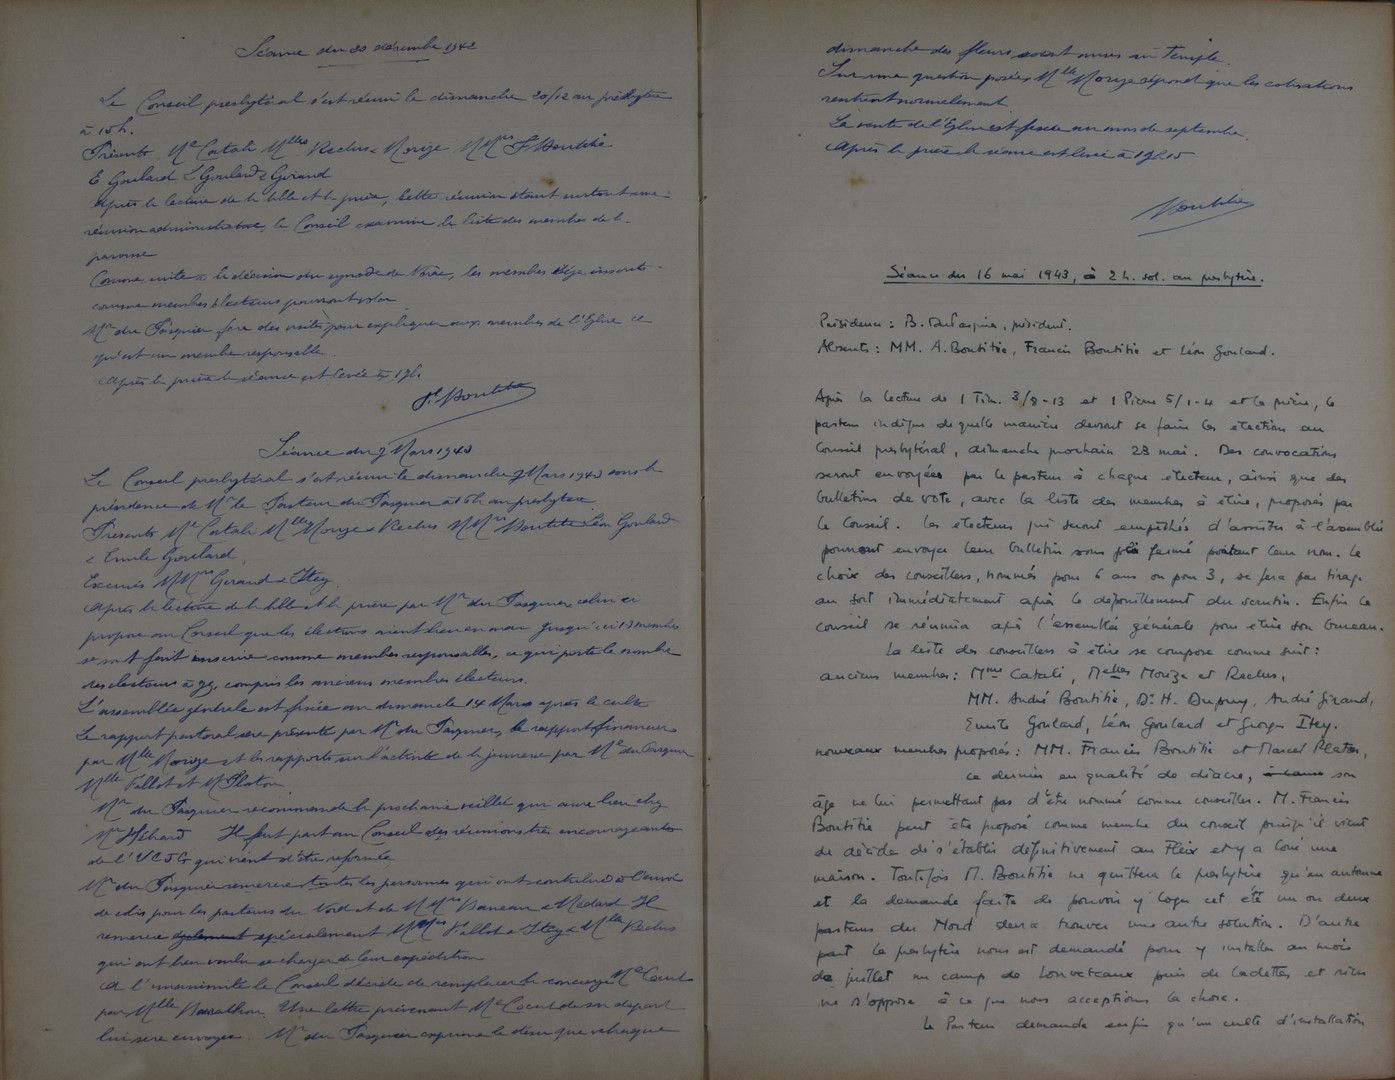 Séance du 20 décembre 1942
Le Conseil presbytéral s'est réuni le dimanche 20/12 au presbytère
à 15h.
Présents Me Catali Mlles Reclus & Morize MMrs F Boutitie
E Goulard L Goulard & Girand
après la lecture de la bible et la prière, cette réunion étant surtout une
réunion administrative, le Conseil examine la liste des membres de la
paroisse
Comme suite à la décision du synode de Nérac, les membres déjà inscrits
comme membres électeurs pourront voter
Mr du Pasquier fera des visites pour expliquer aux membres de l'Eglise ce
qu'est un membre responsable.
après la prière la séance est levée à 17h.
F. Boutitie
Séance du 7 Mars 1943
Le Conseil presbytéral s'est réuni le dimanche 7 Mars 1943 sous la
présidence de Mr le Pasteur du Pasquier à 16h au presbytère
Présents Me Catali Mlles Morize & Reclus MMrs Boutitie Léon Goulard
& Emile Goulard
Excusés MMrs Girand & Itey
après la lecture de la bible et la prière par Mr du Pasquier, celui ci
propose au Conseil que les élections aient lieu en mai Jusqu'ici 13 membres
se sont fait inscrire comme membres responsables, ce qui porte le nombre
des électeurs à 79, compris les anciens membres électeurs.
L'assemblée générale est fixée au dimanche 14 Mars après le culte
Le rapport pastoral sera présenté par Mr du Pasquier, le rapport financier
par Mlle Morize et les rapports sur l'activité de la jeunesse par Me du Pasquier
Mlle Fallot et M Platon
Mr du Pasquier recommande la prochaine veillée qui aura lieu chez
Mr Il fait part au Conseil des réunions très encourageantes
de l'UCJG qui vient d'être reformée
Mr du Pasquier remercie toutes les personnes qui ont contribué à l'envoi
de colis pour les pasteurs du Nord et de MMrs & Médard Il
remercie également spécialement MMrs Fallot & Itey & Mlle Reclus
qui ont bien voulu se charger de leur expédition
A l'unanimité le Conseil décide de remplacer la concierge Me
par Mlle Une lettre prévenant Me de son départ
lui sera envoyée. Mr du Pasquier exprime le désir que chaque
dimanche des fleurs soient mises au Temple.
Sur une question posée Mlle Morize répond que les cotisations
rentrent normalement
La vente de l'Eglise est fixée au mois de septembre.
Après la prière la séance est levée à 19h15
Boutitie
Séance du 16 mai 1943, à 2 h. sol. au presbytère.
Présidence : B. DuPasquier, président.
Absents : MM. A. Boutitie, Francis Boutitie et Léon Goulard.
Après la lecture de 1 Tim. 3/8-13 et 1 Pierre 5/1-4 et la prière, le
pasteur indique de quelle manière devront se faire les élections au
Conseil presbytéral, dimanche prochain 23 mai. Des convocations
seront envoyées par le pasteur à chaque électeur, ainsi que des
bulletins de vote, avec la liste des membres à élire, proposés par
le Conseil. Les électeurs qui seront empêchés d'assister à l'assemblée
pourront envoyer leur bulletin sous pli fermé portant leur nom. Le
choix des conseillers, nommés pour 6 ans ou pour 3, se fera par tirage
au sort immédiatement après le dépouillement du scrutin. Enfin le
conseil se réunira après l'assemblée générale pour élire son bureau.
La liste des conseillers à élire se compose comme suit :
anciens membres : Mme Catali, Melles Morize et Reclus,
MM. André Boutitie, Dr H. Dupuy, André Girand,
Emile Goulard, Léon Goulard et Georges Itey.
nouveaux membres proposés : MM. Francis Boutitie et Marcel Platon,
ce dernier en qualité de diacre, à cause son
âge ne lui permettant pas d'être nommé comme conseiller. M. Francis
Boutitie peut être proposé comme membre du conseil puisqu'il vient
de décider de s'établir définitivement au Fleix et y a loué une
maison. Toutefois M. Boutitie ne quittera le presbytère qu'en automne
et la demande faite de pouvoir y loger cet été un ou deux
pasteurs du Nord devra trouver une autre solution. D'autre
part le presbytère nous est demandé pour y installer au mois
de juillet un camp de Louveteaux puis de Cadettes et rien
ne s'oppose à ce que nous acceptions la chose.
Le Pasteur demande enfin qu'un culte d'installation